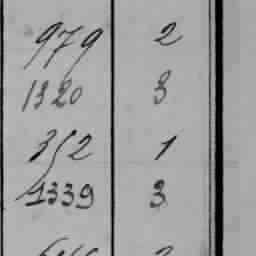 979 2
1320 3
352 1
1339 3